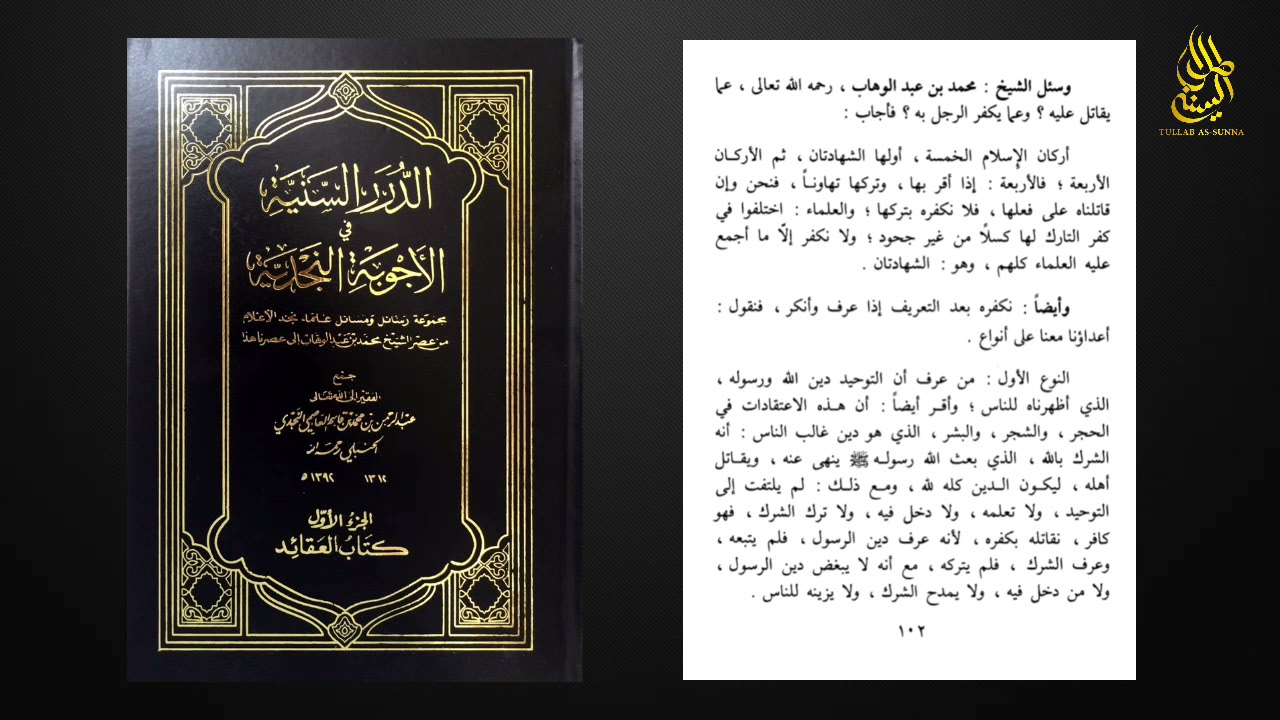 الدُّرَرُ السَّنِيَّة
في
الأَجْوِبَةِ النَّجْدِيَّة
مجموعة رسائل ومسائل علماء نجد الأعلام
من عصر الشيخ محمد بن عبد الوهاب إلى عصرنا هذا
جمع
الفقير إلى الله تعالى
عبد الرحمن بن محمد بن قاسم العاصمي النجدي
الحنبلي رحمه الله
١٣١٢ ١٣٩٢ ه
الجزء الأول
كتاب العقائد
وسئل الشيخ : محمد بن عبد الوهاب ، رحمه الله تعالى ، عما
يقاتل عليه ؟ وعما يكفر الرجل به ؟ فأجاب :
أركان الإسلام الخمسة ، أولها الشهادتان ، ثم الأركان
الأربعة ؛ فالأربعة : إذا أقر بها ، وتركها تهاوناً ، فنحن وإن
قاتلناه على فعلها ، فلا نكفره بتركها ؛ والعلماء : اختلفوا في
كفر التارك لها كسلًا من غير جحود ؛ ولا نكفر إلّا ما أجمع
عليه العلماء كلهم ، وهو : الشهادتان .
وأيضاً : نكفره بعد التعريف إذا عرف وأنكر ، فنقول :
أعداؤنا معنا على أنواع .
النوع الأول : من عرف أن التوحيد دين الله ورسوله ،
الذي أظهرناه للناس ؛ وأقر أيضاً : أن هذه الاعتقادات في
الحجر ، والشجر ، والبشر ، الذي هو دين غالب الناس : أنه
الشرك بالله ، الذي بعث الله رسوله ﷺ ينهى عنه ، ويقاتل
أهله ، ليكون الدين كله لله ، ومع ذلك : لم يلتفت إلى
التوحيد ، ولا تعلمه ، ولا دخل فيه ، ولا ترك الشرك ، فهو
كافر ، نقاتله بكفره ، لأنه عرف دين الرسول ، فلم يتبعه ،
وعرف الشرك ، فلم يتركه ، مع أنه لا يبغض دين الرسول ،
ولا من دخل فيه ، ولا يمدح الشرك ، ولا يزينه للناس .
١٠٢
طلاب السنة
TULLAB AS-SUNNA